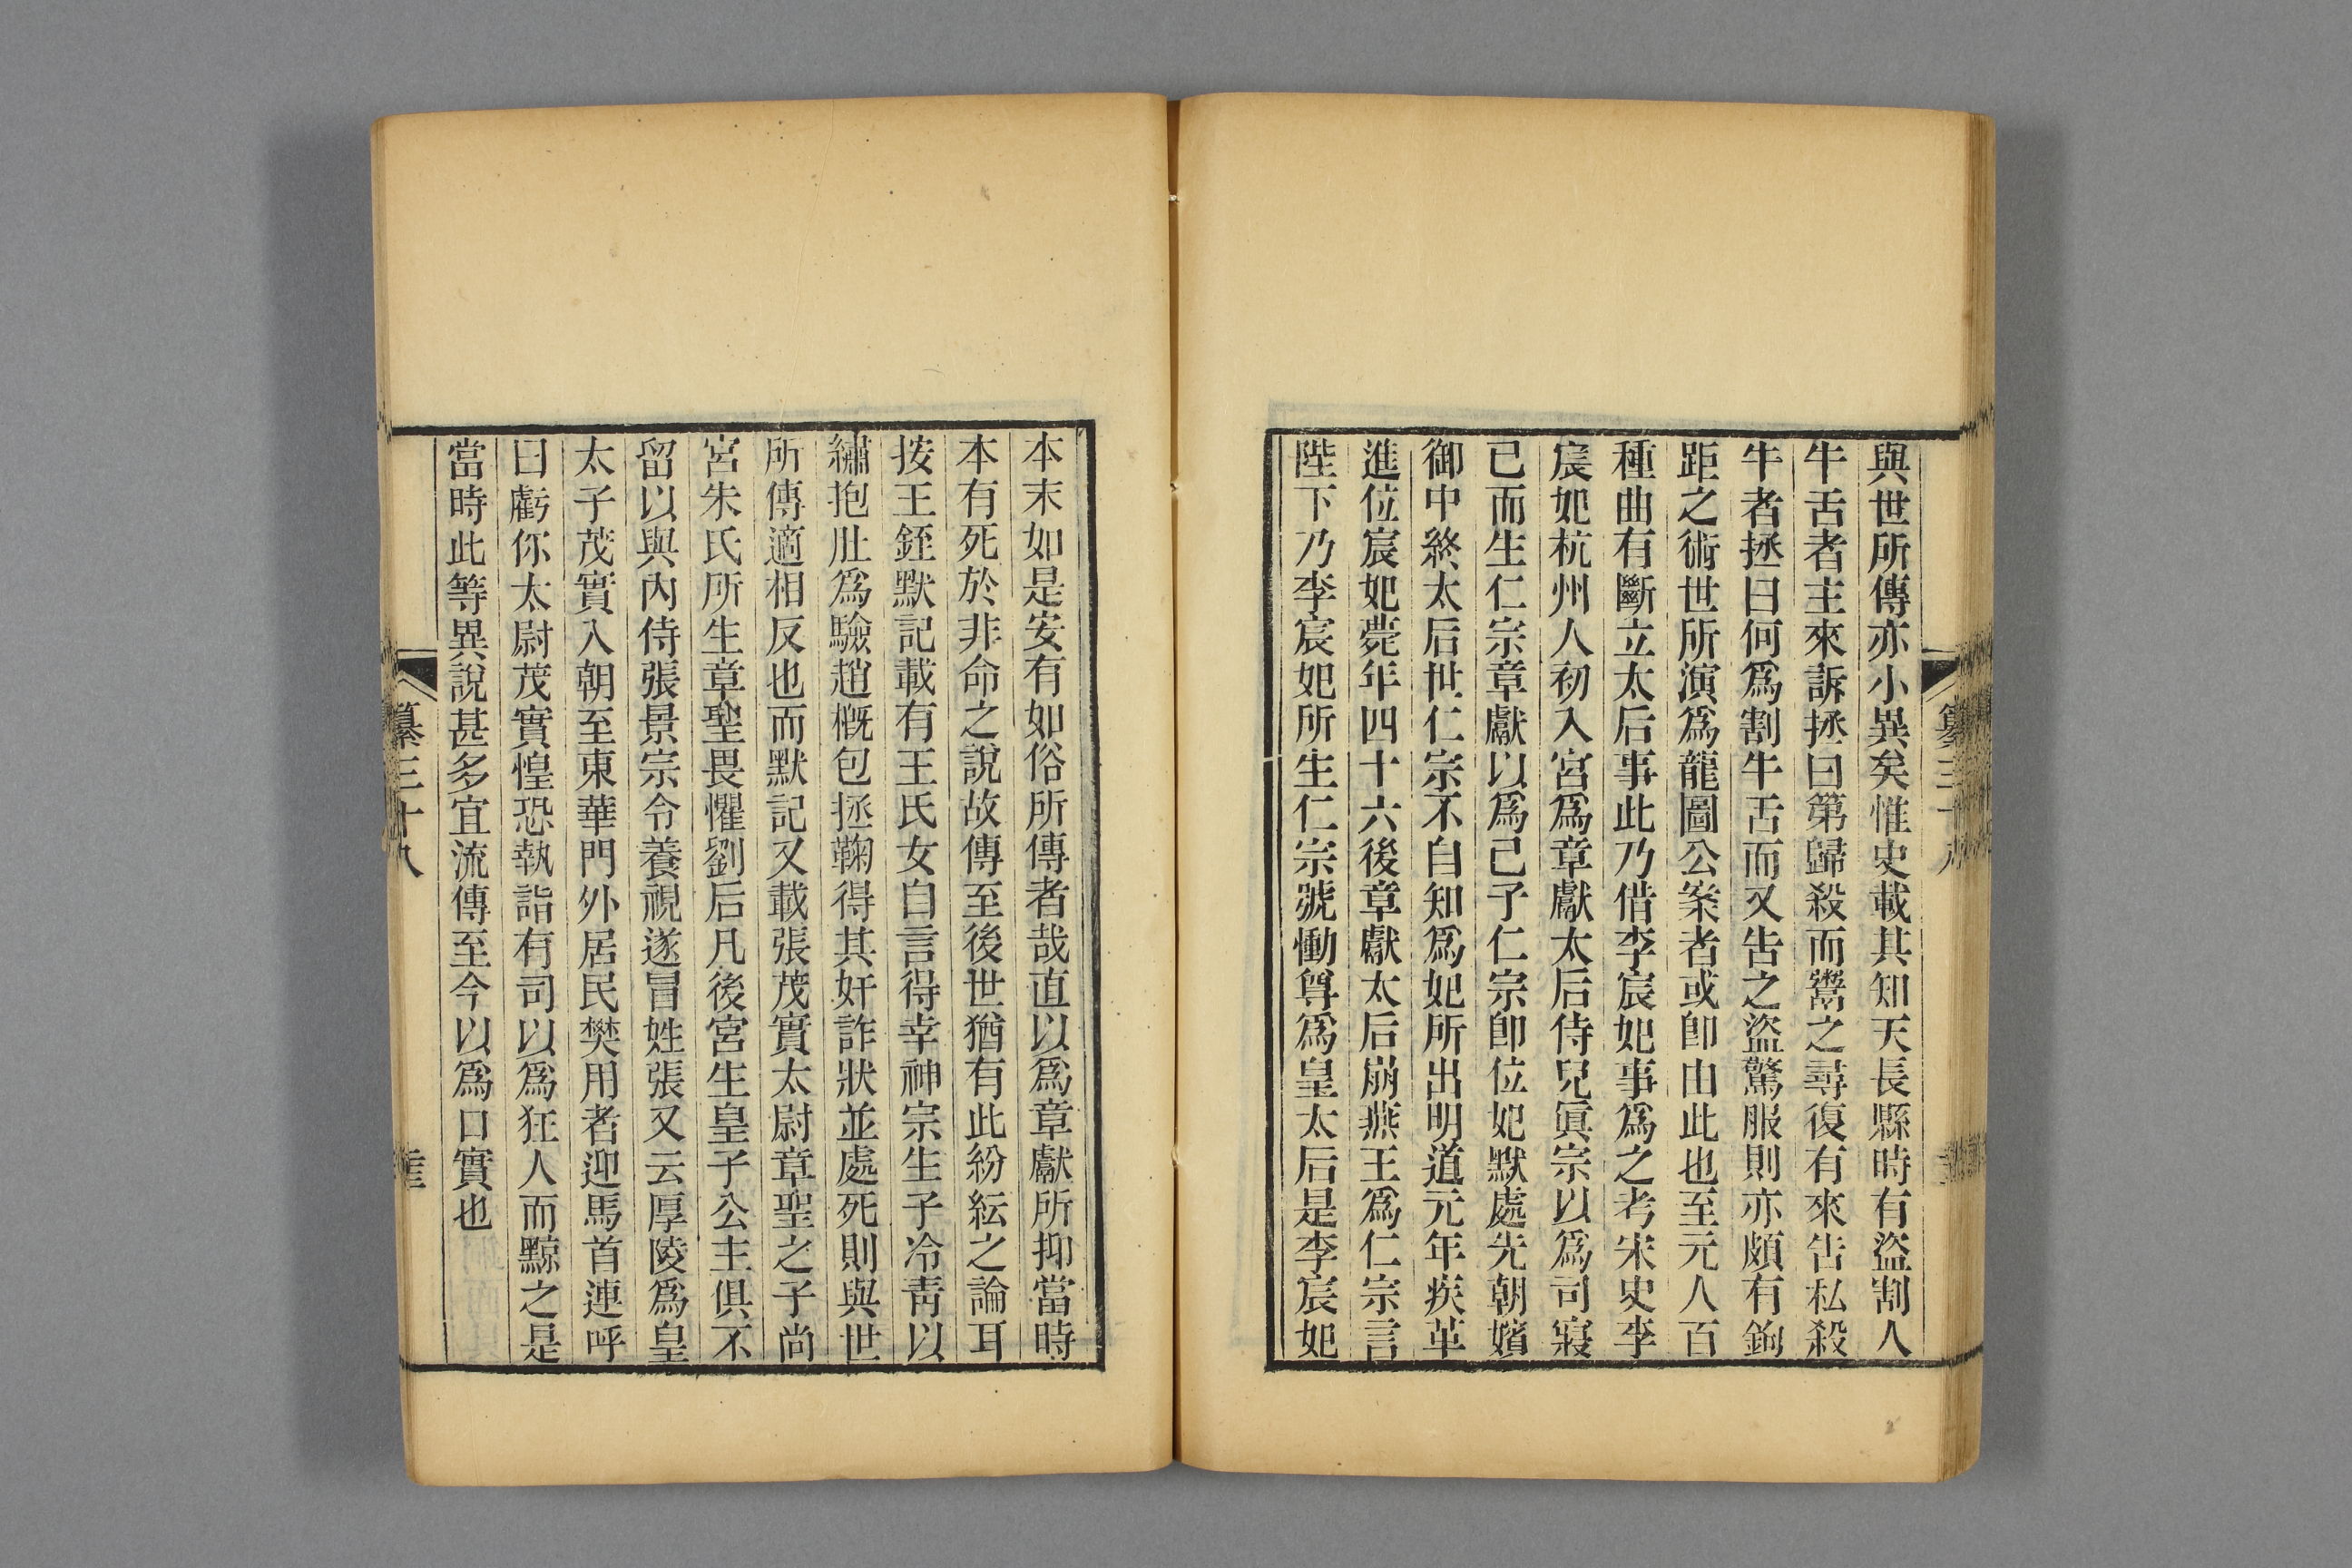 與世所傳亦小異矣惟史載其知天長縣時有盜割人
牛舌者主來訴拯曰第歸殺而鬻之尋復有來告私殺
牛者拯曰何爲割牛舌而又告之盜驚服則亦頗有鉤
距之術世所演爲龍圖公案者或卽由此也至元人百
種曲有斷立太后事此乃借李宸妃事爲之考宋史李
宸妃杭州人初入宮爲章獻太后侍兒眞宗以爲司寢
已而生仁宗章獻以爲己子仁宗卽位妃默處先朝嬪
御中終太后世仁宗不自知爲妃所出明道元年疾革
進位宸妃薨年四十六後章獻太后崩燕王爲仁宗言
陛下乃李宸妃所生仁宗號慟尊爲皇太后是李宸妃
本末如是安有如俗所傳者哉直以爲章獻所抑當時
本有死於非命之說故傳至後世猶有此紛紜之論耳
按王銍默記載有王氏女自言得幸神宗生子冷靑以
繡抱肚爲驗趙槪包拯鞠得其奸詐狀並處死則與世
所傳適相反也而默記又載張茂實太尉章聖之子尚
宮朱氏所生章聖畏懼劉后凡後宮生皇子公主俱不
留以與內侍張景宗令養視遂冒姓張又云厚陵爲皇
太子茂實入朝至東華門外居民樊用者迎馬首連呼
曰虧你太尉茂實惶恐執詣有司以爲狂人而黥之是
當時此等異說甚多宜流傳至今以爲口實也
纂三十八